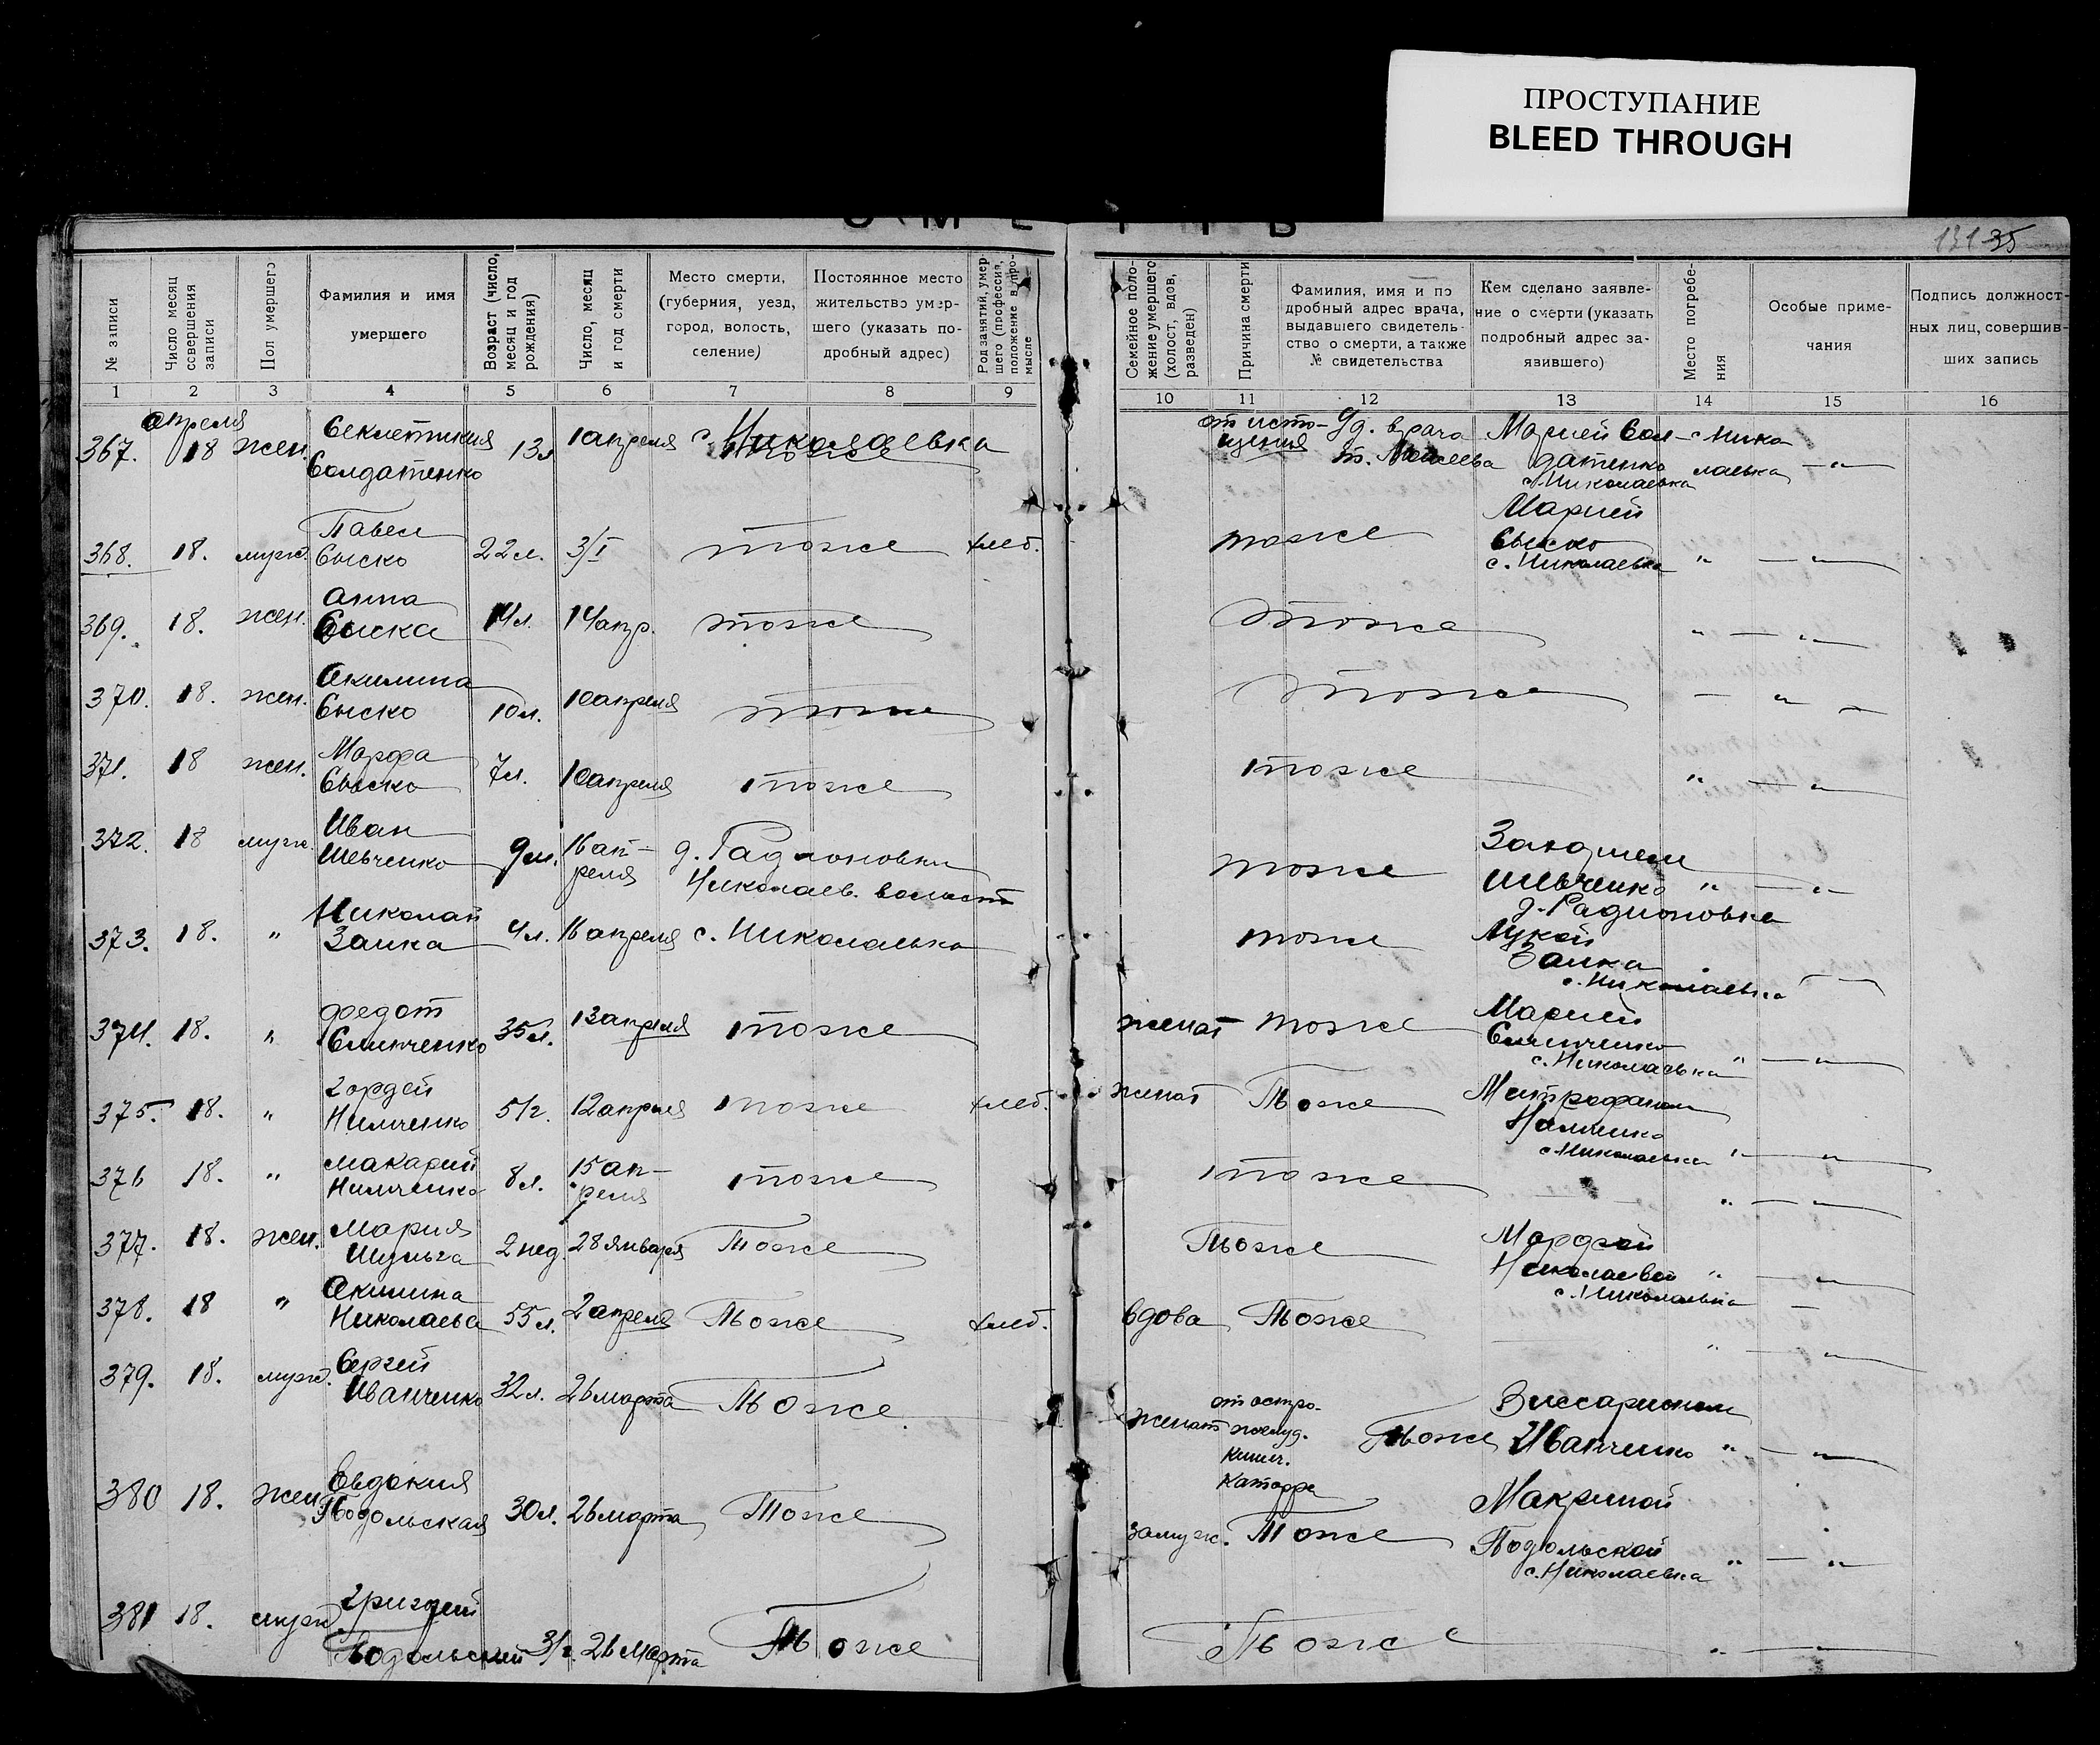 ПРОСТУПАНИЕ
BLEED THROUGH
131 35
№ записи
Число месяц совершения записи
Пол умершего
Фамилия и имя умершего
Возраст (число, месяц и год рождения)
Число, месяц и год смерти
Место смерти, (губерния, уезд, город, волость, селение)
Постоянное место жительство умершего (указать подробный адрес)
Род занятий, умершего (профессия, положение в промысле
Семейное положение умершего (холост, вдов, разведен)
Причина смерти
Фамилия, имя и подробный адрес врача, выдавшего свидетельство о смерти, а также № свидетельства
Кем сделано заявление о смерти (указать подробный адрес заявившего)
Место погребения
Особые примечания
Подпись должностных лиц, совершивших запись
1 2 3 4 5 6 7 8 9 10 11 12 13 14 15 16
апреля
367. 18 жен. Секлетикия Солдатенко 13л 1 апреля с. Николаевка от истощения Уд. врача Марией Солдатенко с. Николаевка с Николаевка — " —
368. 18. муж. Павел Сыско 22 л. 3/I тоже хлеб. тоже Марией Сыско с. Николаевка " — " —
369. 18. жен. Анна Сыска 14л. 14 апр. тоже тоже " — " —
370. 18. жен. Акилина Сыско 10 л. 10 апреля тоже тоже — " —
371. 18 жен. Марфа Сыско 7 л. 10 апреля тоже тоже " — " —
372. 18 муж. Иван Шевченко 9 м. 16 апреля д. Радионовки Николаев. волости тоже Шевченко д. Радионовка " — " —
373. 18. " Николай Заика 4 л. 16 апреля с. Николаевка тоже Лукой Заика с. Николаевка
374. 18. " Федот 35 л. 13 апреля тоже женат тоже Марией с. Николаевка " — " —
375. 18. " Гордей Нимченко 51 г. 12 апреля тоже хлеб. женат Тоже Митрофаном Нимченко с. Николаевка " — " —
376 18. " Макарий Нимченко 8 л. 15 апреля тоже тоже " — " —
377. 18. жен. Мария Шульга 2 нед. 28 января Тоже Тоже Марфой Николаевой с. Николаевка " — " —
378. 18 " Акилина Николаева 55 л. 2 апреля Тоже хлеб. вдова Тоже " — " —
379. 18. муж. Сергей Иванченко 32 л. 26 марта Тоже женат от остро. желуд. кишеч. катарра Тоже Виссарионом Иванченко " — " —
380 18. жен. Евдокия Подольская 30 л. 26 марта Тоже замуж. Тоже Макриной Подольской с. Николаевка " — " —
381 18. муж. Григорий Подольский 3/г. 26 марта Тоже Тоже " — " —